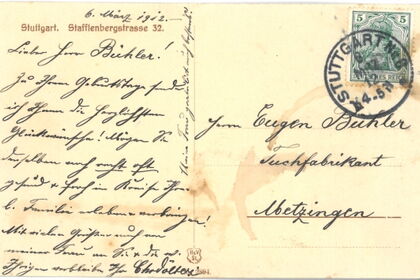 6. März 1912.
Stuttgart. Stafflenbergstrasse 32.
Lieber Herr Bühler!
Zu Ihrem Geburtstage sende
ich Ihnen die herzlichsten
Glückwünsche! Mögen Sie
denselben noch recht oft
gesund & froh im Kreise Ihrer
l. Familie erleben & verbringen!
Mit vielen Grüßen auch an
meiner Frau an Sie & die w.
Ihrigen verbleibe Ihr
Herrn Eugen Bühler
Tuchfabrikant
Metzingen
5 5
STUTTGART